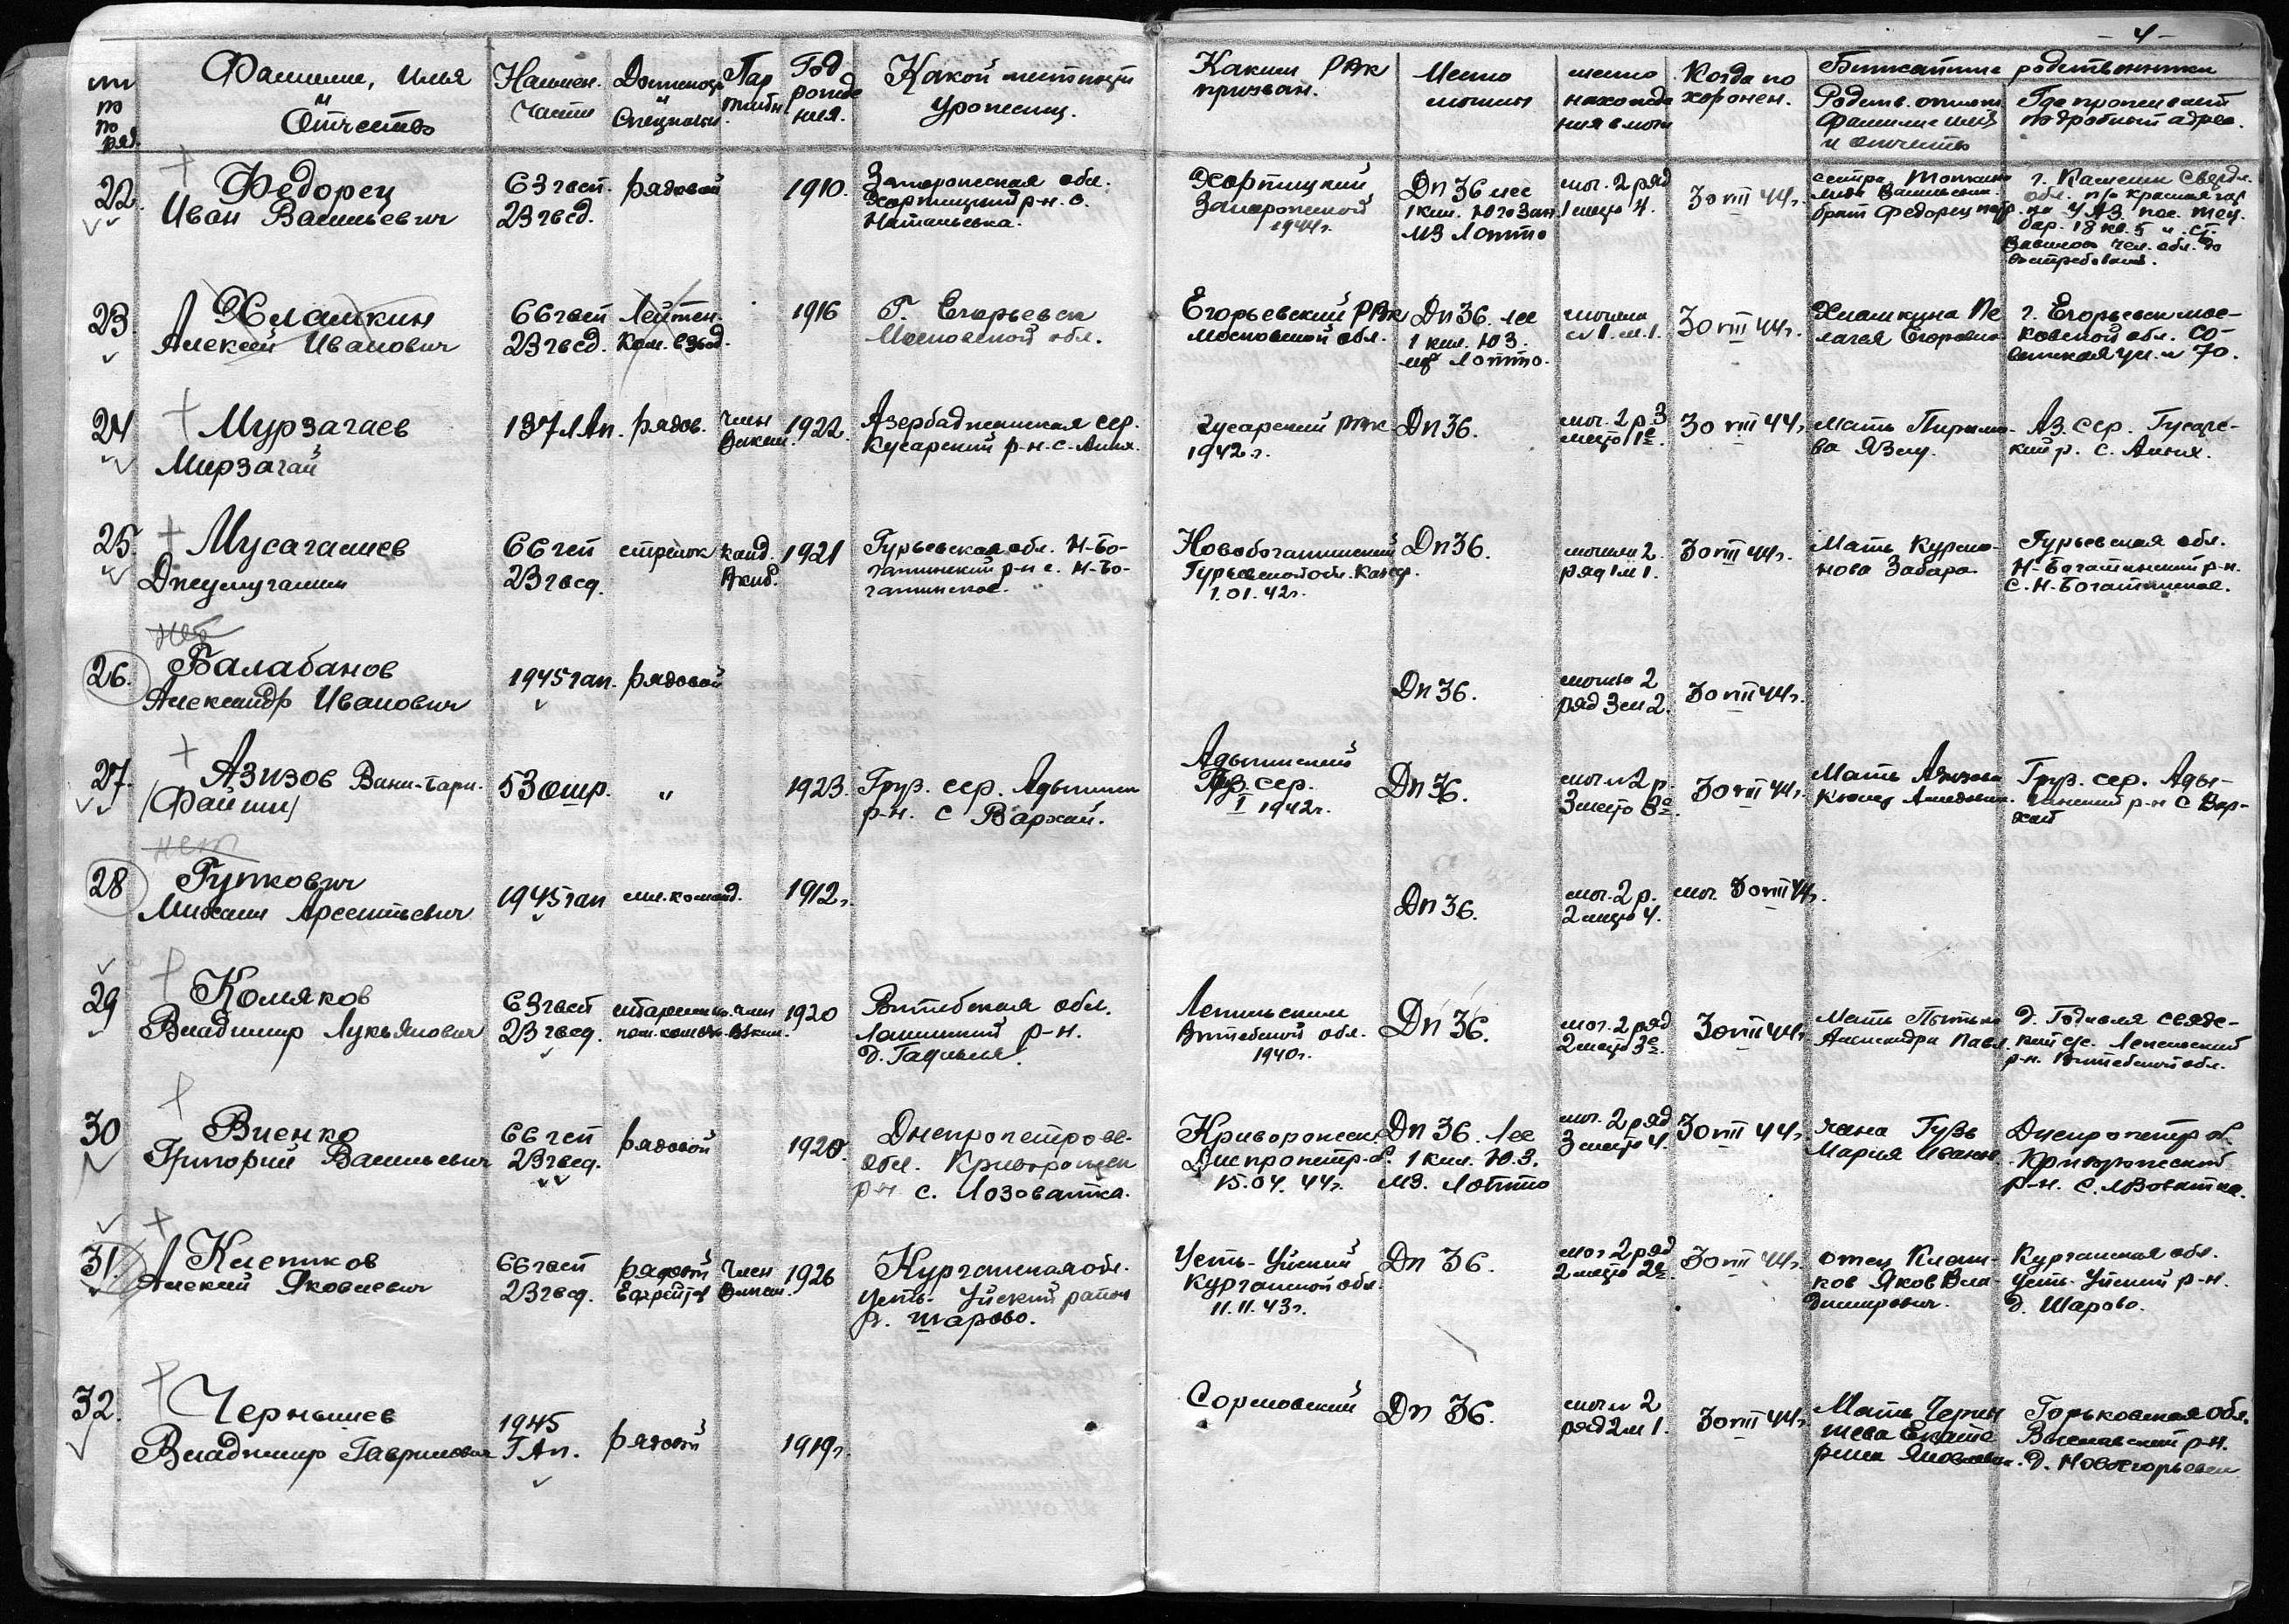 - 4 -
Фамилия, имя
и
Отчество
Наимен.
Части
Должность
и
Специальн.
Пар
тийн.
Год
рожде
ния.
Какой местности
Уроженец.
Каким РВК
призван.
Место
могилы
место
нахожде
ния в моги
Когда по
хоронен.
Ближайшие родственники
Родств. отнош
Фамилия имя
и отчество
Где проживает
подробный адрес.
22.
Федорец
Иван Васильевич
63 гвсп.
23 гвсд.
рядовой
1910.
Запорожская обл.
Хортицкий р-н. с.
Хортицкий
Запорожской
1944 г.
Дп 36 лес
1 клм. Юго Зап
МЗ Лотто
мог. 2 ряд
1 место 4.
30 VIII 44 г.
сестра
брат Федорец
23.
Хламкин
Алексей Иванович
66 гвсп
23 гвсд.
Лейтен.
Ком. взвод.
1916
Г. Егорьевск
Московской обл.
Егорьевский РВК
Московской обл.
Дп 36. лес
1 клм. ЮЗ.
мз Лотто.
могила
№ 1. м. 1.
30 VIII 44 г.
Хламкина Пе
лагея Егоровна
г. Егорьевск Мос-
ковской обл. Со-
ветская ул. № 70.
24
Мурзагаев
Мирзагай
137 ЛАп.
рядов.
член
1922.
Азербаджанская сср.
Кусарский р-н. с.
Гусарский РВК
1942 г.
Дп 36.
мог. 2 р. 3
место 1е.
30 VIII 44 г.
Мать
Аз. сср. Гусарс-
кий р. с.
25.
Мусагалиев
Джумугалии
66 гсп
23 гвсд.
стрелок
канд.
1921
Гурьевская обл. Н-Бо-
гатинский р-н с. Н-Бо-
гатинское.
Новобогатинский
Гурьевской обл.
1.01.42 г.
Дп 36.
могила 2.
ряд 1 м 1.
30 VIII 44 г.
Мать Курма-
нова Забара
Гурьевская обл.
Н-Богатинский р-н.
с. Н-Богатинское.
нет
26.
Балабанов
Александр Иванович
1945 гап.
рядовой
Дп 36.
могила 2
ряд 3 м 2.
30 VIII 44 г.
27.
Азизов
/Файши/
53 ошр.
"
1923.
Груз. сср. Адыгинск
р-н. с Вархан.
Адыгинский
Груз. сср.
I 1942 г.
Дп 36.
мог № 2 р.
3 место 3е.
30 VIII 44 г.
Мать Азизова
Груз. сср. Ады-
гинский р-н с Вар-
хан
нет
28
Гуткович
Михаил Арсентьевич
1945 гап
мл. команд.
1912 г.
Дп 36.
мог. 2 р.
2 место 4.
мог. 30 VIII 44 г.
29
Комяков
Владимир Лукьянович
63 гвсп
23 гвсд.
член
1920
Витебская обл.
р-н.
Лепельским
Витебской обл.
1940 г.
Дп 36.
мог. 2 ряд
2 место 3е.
30 VIII 44 г.
Мать
Александра Павл.
р-н. Витебской обл.
30
Виенко
Григорий Васильевич
66 гсп
23 гвсд.
рядовой
1920.
Днепропетровс-
обл. Криворожск
р-н с. Лозоватка.
Криворожск.
Днепропетр. о.
15.04.44 г.
Дп 36. Лес
1 клм. Ю.З.
МЗ. Лотто
мог. 2 ряд
3 место 4.
30 VIII 44 г.
жена Гузь
Мария Иванн
Днепропетр об.
Криворожской
р-н. с. Лозоватка.
31.
Клепиков
Алексей Яковлевич
66 гвсп
23 гвсд.
рядовой
Ефрейтор
Член
1926
Курганская обл.
Усть-Уйский район
д. Шарово.
Усть-Уйский
Курганской обл.
11.11.43 г.
Дп 36.
мог 2 ряд
2 место 2е.
30 VIII 44 г.
отец Клепи-
ков Яков Вла-
димирович.
Курганская обл.
Усть-Уйский р-н.
д. Шарово.
32.
Чернышев
Владимир Гаврилович
1945
ГАп.
рядовой
1919 г.
Сормовский
Дп 36.
мог № 2
ряд 2 м 1.
30 VIII 44 г.
Мать Черны
шева Екате
рина Яковлевн.
Горьковская обл.
р-н.